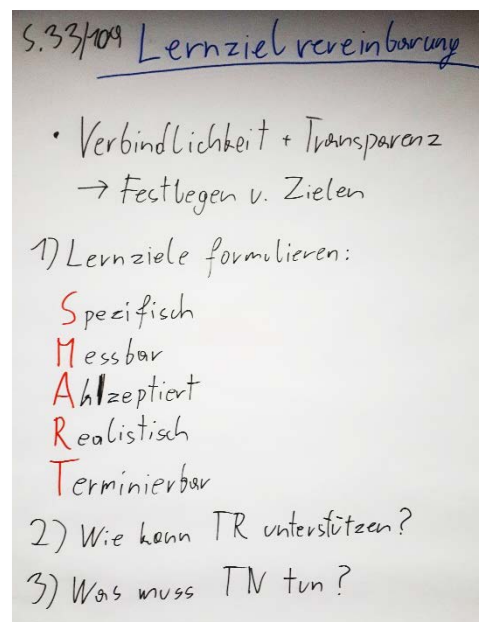 S.33/109 Lernzielvereinbarung
• Verbindlichkeit + Transparenz
→ Festlegen v. Zielen
1) Lernziele formulieren:
Spezifisch
Messbar
Akzeptiert
Realistisch
Terminierbar
2) Wie kann TR unterstützen?
3) Was muss TN tun?